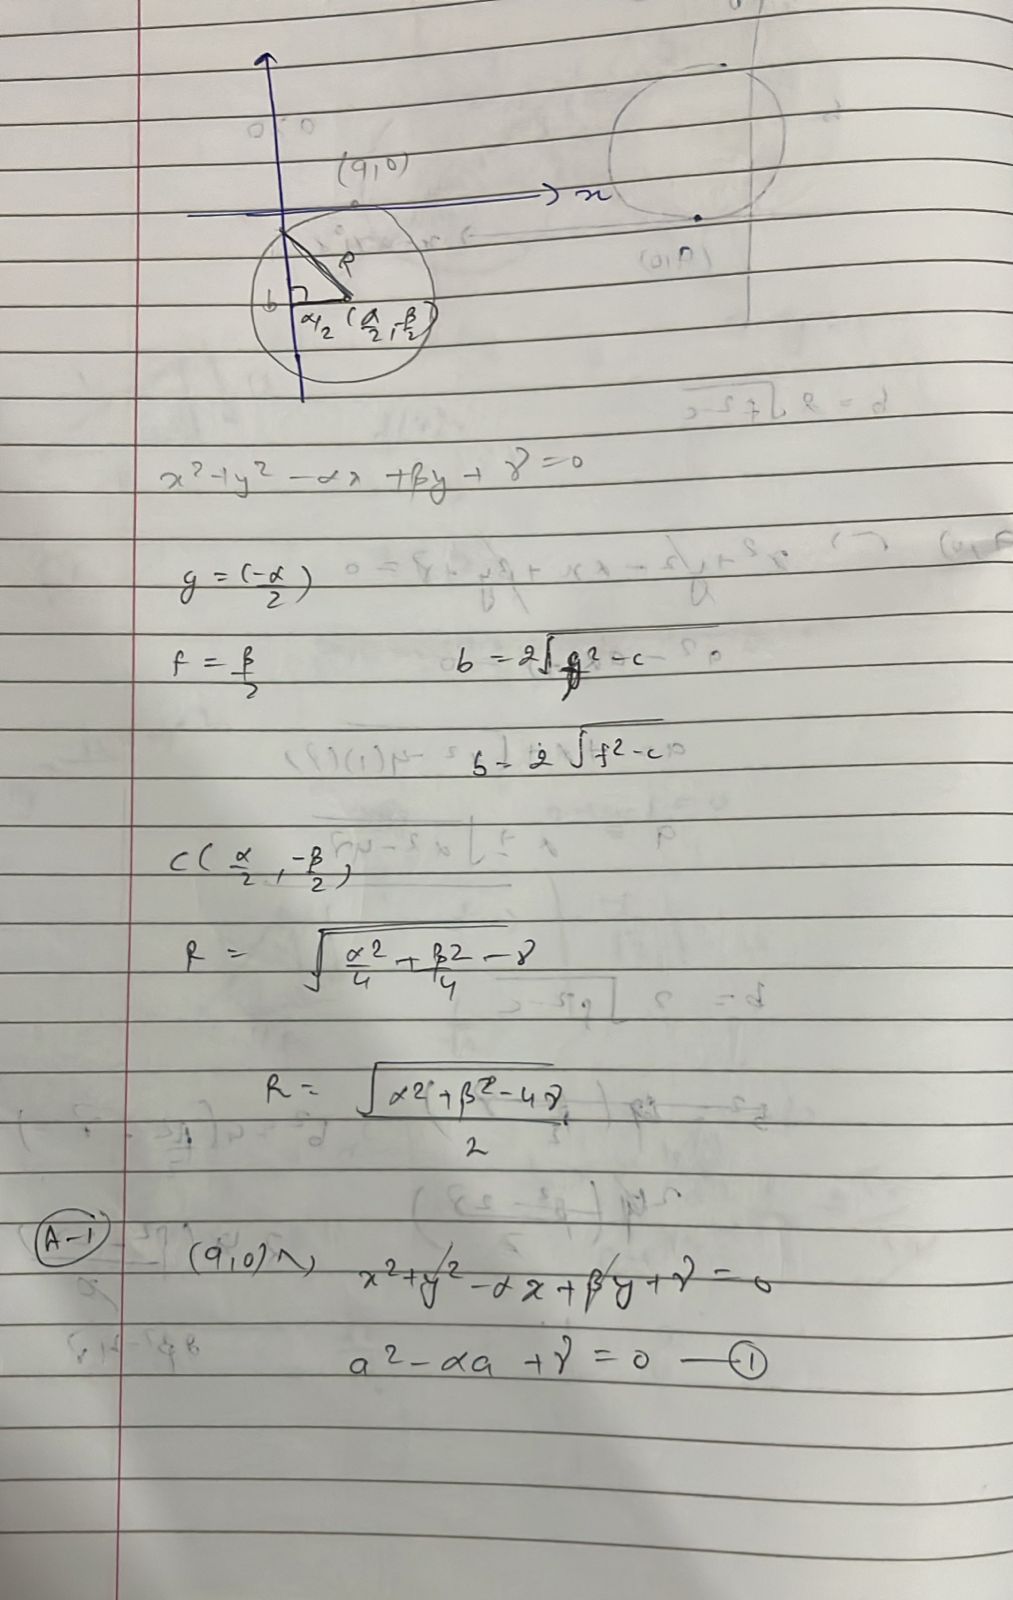 (a,0)
x
R
b
α/2 (α/2, -β/2)
x² + y² - αx + βy + γ = 0
g = (-α/2)
f = β/2 b = 2√g² - c
b = 2√f² - c
C(α/2, -β/2)
R = √α²/4 + β²/4 - γ
R = √α² + β² - 4γ / 2
A-1
(a,0) ~> x² + y² - αx + βy + γ = 0
a² - αa + γ = 0 — ①